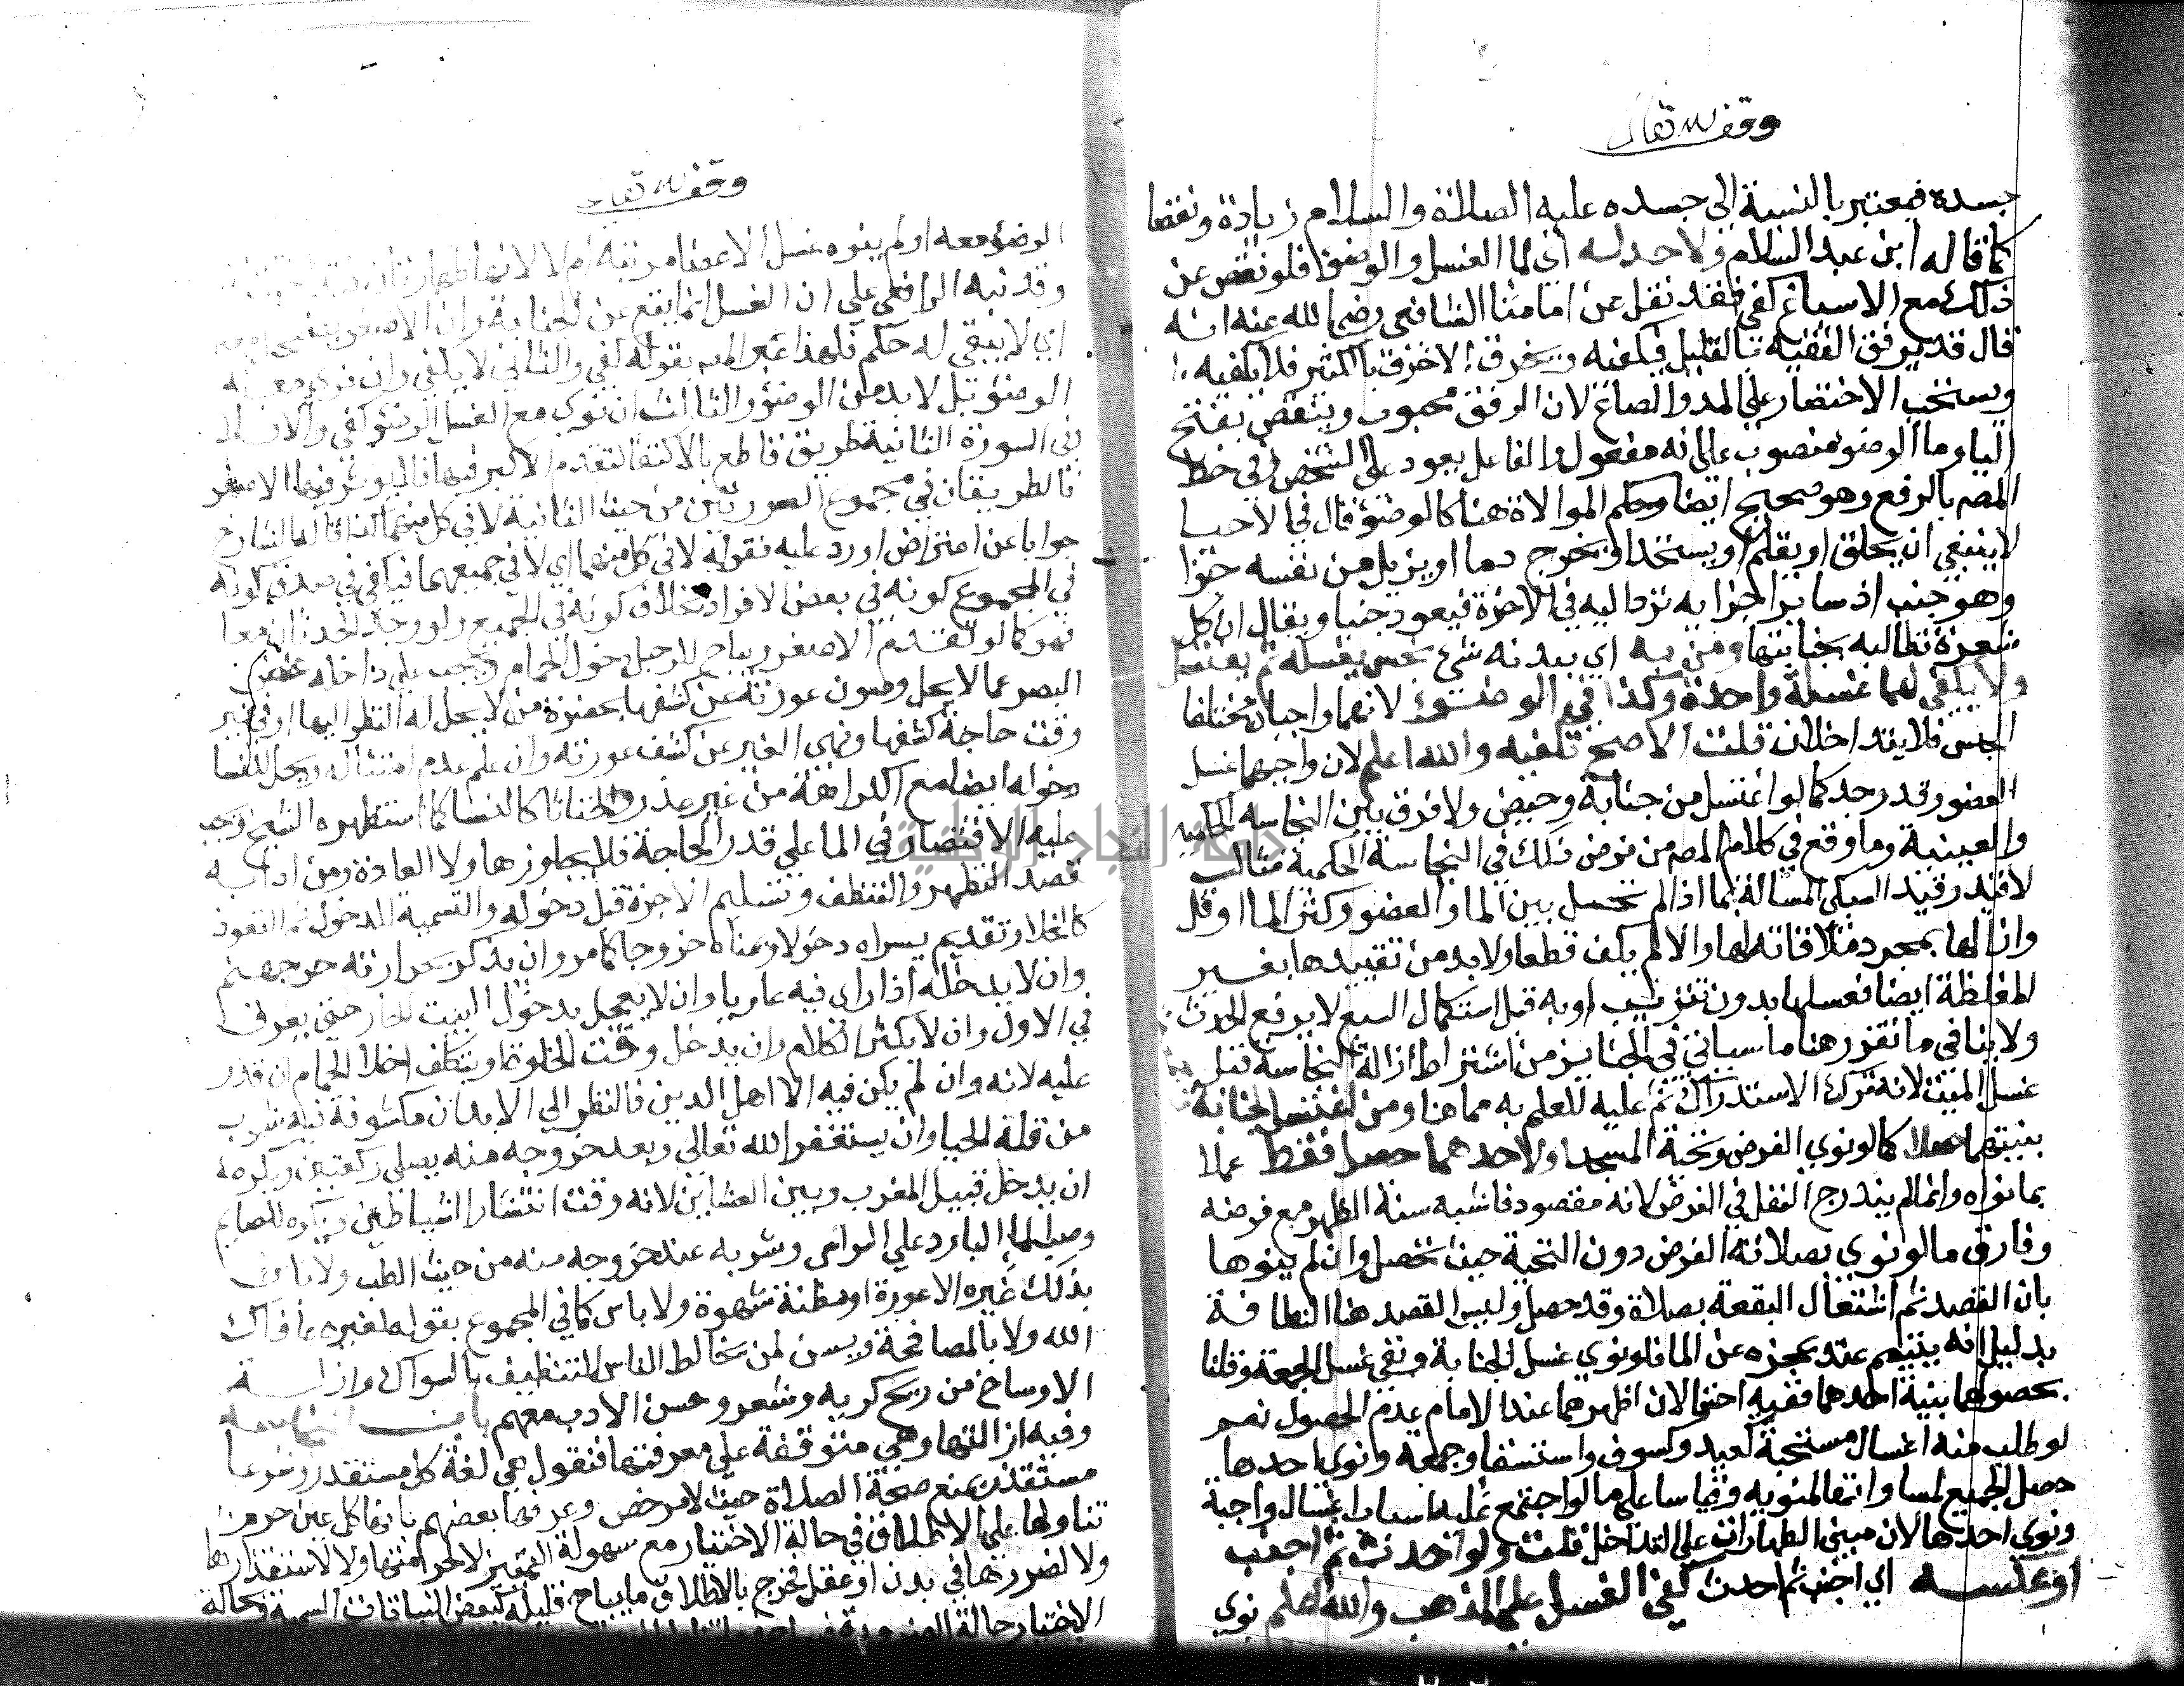 وقف لله تعالى
جسده فيعتبر بالنسبة الي جسده عليه الصلاة والسلام زيادة ونقصا
كما قاله ابن عبد السلام ولا حد له اي لما الغسل والوضؤ فلو نقص عن
ذلك مع الاسباغ كفي فقد نقل عن امامنا الشافعي رضي الله عنه انه
قال قد يرفق الفقيه بالقليل فيكفيه ويخرق الاخرق بالكثير فلا يكفيه
ويستحب الاختصار علي المد والصاع لان الرفق محبوب وينقص بفتح
اليا وما الوضو منصوب علي انه مفعول والفاعل يعود علي الشخص وفي خط
المصم بالرفع وهو صحيح ايضا وحكم الموالاة هنا كالوضؤ قال في الاحيا
لا ينبغي ان يحلق او يقلم او يستحد او يخرج دما او يزيل من نفسه جزا
وهو جنب اذ ساير اجزايه تزد اليه في الاخرة فيعود جنبا ويقال ان كل
شعرة تطالبه بجنابتها ومن به اي ببدنه شي نجس يغسله ثم يغتسل
ولا يكفي لهما غسلة واحدة وكذا في الوضوء لانهما واجبان مختلفا
الجنس فلا يتداخلان قلت الاصح تكفيه والله اعلم لان واجبهما غسل
العضو وقد وجد كما لو اغتسل من جنابة وحيض ولا فرق بين النجاسه الحكميه
والعينية وما وقع في كلام المصم من فرض ذلك في النجاسة الحكمية مثال
لا قيد وقيد السبكي المسالة بما اذا لم تحل بين الما والعضو وكثر الما او قل
وازالها بمجرد ملاقاته لها والا لم يكف قطعا ولا بد من تقييدها بغير
المغلظة ايضا فغسلها بدون تتريب او به قبل استكمال السبع لا يرفع الحدث
ولا ينافي ما تقرر هنا ما سياتي في الجنايز من اشتراط ازالة النجاسة قبل
غسل الميت لانه ترك الاستدراك ثم عليه للعلم به مما هنا ومن اغتسل لجنابة
بنيتهما حصلا كما لو نوي الفرض وتحية المسجد او لاحدهما حصل فقط عملا
بما نواه وانما لم يندرج النفل في الفرض لانه مقصود فاشبه سنة الظهر مع فرضه
وفارق ما لو نوي بصلاته الفرض دون التحية حيث تحصل وان لم ينوها
بان القصد ثم اشتغال البقعة بصلاة وقد حصل وليس القصد هنا النظافة
بدليل انه يتيمم عند عجزه عن الما فلو نوي غسل الجنابة ونفي غسل الجمعة وقلنا
بحصولها بنية احدهما ففيه احتمالان اظهرهما عند الامام عدم الحصول نعم
لو طلب منه اغسال مستحبة كعيد وكسوف واستسقا وجمعة ونوي احدها
حصل الجميع لمساواتها لمنويه وقياسا علي ما لو اجتمع عليه اسباب اغسال واجبة
ونوي احدها لان مبني الطهارات علي التداخل قلت ولو احدث ثم اجنب
او عكسه اي اجنب ثم احدث كفي الغسل علي المذهب والله اعلم نوي
وقف لله تعالى
الوضؤ معه او لم ينوه غسل الاعضا مرتبة ام لا لانهما طهارتان
وقد نبه الرافعي علي ان الغسل انما يقع عن الجنابة وان الاصغر يضمحل معه
اي لا يبقي له حكم فلهذا عبر المصم بقوله كفي والثاني لا يكفي وان نوي معه
الوضؤ بل لا بد من الوضؤ والثالث ان نوي مع الغسل الوضؤ كفي والا فلا
وفي السورة الثانية طريق قاطع بالاكتفا لتقدم الاكبر فيها فلا يوثر فيها الاصغر
فالطريقان في مجموع الصورتين من حيث الثانية لا في كل منهما كذا قاله الشارح
جوابا عن اعتراض اورد عليه فقوله لا في كل منهما اي لا في جميعهما فيكفي في صدق كونه
في المجموع كونه في بعض الافراد بخلاف كونه في الجميع ولو وجد الحدثان معا
فهو كما لو تقدم الاصغر ويباح للرجل دخول الحمام ويجب علي داخله غض
البصر عما لا يحل وصون عورته عن كشفها بحضرة من لا يحل له النظر اليها او في غير
وقت حاجة كشفها ونهي الغير عن كشف عورته وان علم عدم امتثاله ويحل للنسا
دخوله ايضا مع الكراهة من غير عذر والخناثا كالنسا كما استظهره الشيخ ويجب
عليه الاقتصار في الما علي قدر الحاجة فلا يجاوزها ولا العادة ومن ادابه
قصد التطهر والتنظف وتسليم الاجرة قبل دخوله والتسمية للدخول ثم التعوذ
كالخلا وتقديم يسراه دخولا ويمناه خروجا كما مر وان يذكر بحرارته حر جهنم
وان لا يدخله اذا راي فيه عاريا وان لا يعجل بدخول البيت الحار حتي يعرق
في الاول وان لا يكثر الكلام وان يدخل وقت الخلوة او يتكلف اخلا الحمام ان قدر
عليه لانه وان لم يكن فيه الا اهل الدين فالنظر الي الابدان مكشوفة فيه شوب
من قلة الحيا وان يستغفر الله تعالي وبعد خروجه منه يصلي ركعتين ويكره
ان يدخل قبيل المغرب وبين العشاين لانه وقت انتشار الشياطين ويكره للصايم
وصب الما البارد علي الراس وشربه عند خروجه منه من حيث الطب ولا باس
بدلك غيره الا عورة او مظنة شهوة ولا باس كما في المجموع بقوله لغيره عافاك
الله ولا بالمصافحة ويسن لمن يخالط الناس التنظيف بالسواك وازالة
الاوساخ من ريح كريه وشعر وحسن الادب معهم باب النجاسه
وفيه ازالتها وهي متوقفة علي معرفتها فنقول هي لغة كل مستقذر وشرعا
مستقذر يمنع صحة الصلاة حيث لا مرخص وعرفها بعضهم بانها كل عين حرم
تناولها علي الاطلاق في حالة الاختيار مع سهولة التمييز لا لحرمتها ولا لاستقذارها
ولا لضررها في بدن او عقل فخرج بالاطلاق ما يباح قليله كبعض النباتات السمية وبحالة
الاختيار حالة الضرورة